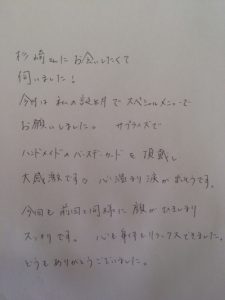 杉崎さんにお会いしたくて
伺いました!
今日は私の誕生月でスペシャルメニューで
お願いしました。 サプライズで
ハンドメイドのバースデーカードを頂戴し
大感激です。心温まり涙が出そうです。
今回も前回と同様に顔がひきしまり
スッキリです。 心も身体もリラックスできました。
どうもありがとうございました。